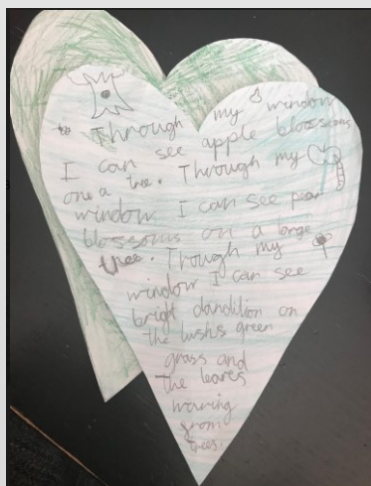 Through my window
I can see apple blossoms
one a tree. Through my
window I can see pear
blossoms on a large
tree. Trough my
window I can see
bright dandilion on
the lushis green
grass and
the leaves
waving
from
trees.